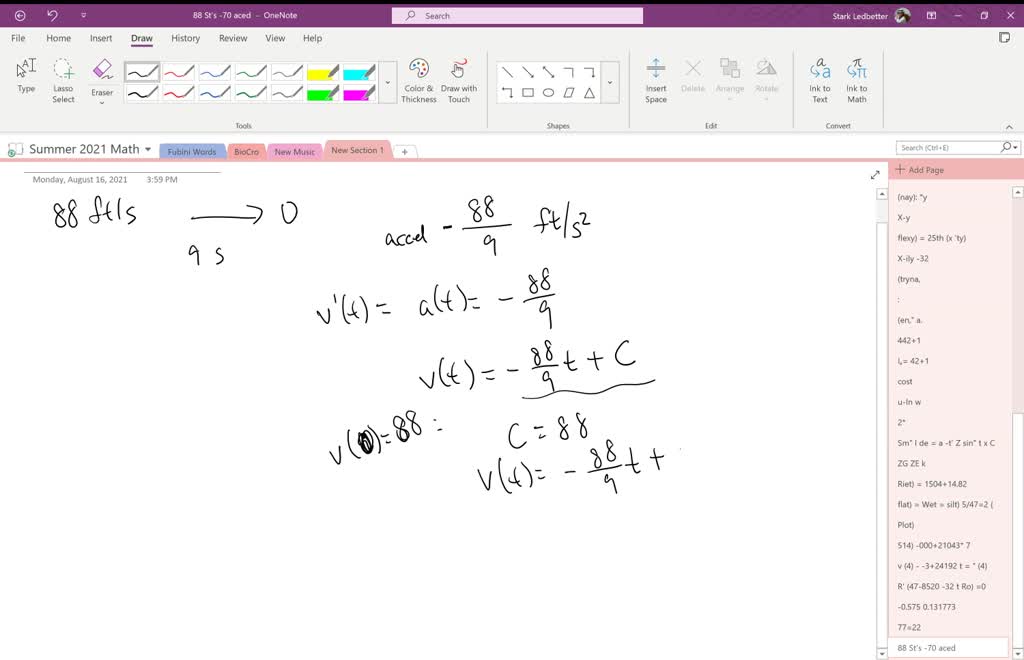 88 St's -70 aced - OneNote
Search
Stark Ledbetter
File Home Insert Draw History Review View Help
Type
Lasso Select
Eraser
Color & Thickness
Draw with Touch
Insert Space
Delete
Arrange
Rotate
Ink to Text
Ink to Math
Tools
Shapes
Edit
Convert
Summer 2021 Math
Fubini Words
BioCro
New Music
New Section 1
Search (Ctrl+E)
Monday, August 16, 2021 3:59 PM
88 ft/s → 0
9 s
accel - 88/9 ft/s²
v'(t) = a(t) = - 88/9
v(t) = - 88/9 t + C
v(0) = 88 :
C = 88
v(t) = - 88/9 t +
Add Page
(nay): "y
X-y
flexy) = 25th (x 'ty)
X-ily -32
(tryna,
:
(en," a.
442+1
l,= 42+1
cost
u-ln w
2"
Sm" l de = a -t' Z sin" t x C
ZG ZE k
Riet) = 1504+14.82
flat) = Wet = silt) 5/47=2 (
Plot)
514) -000+21043* 7
v (4) - -3+24192 t = " (4)
R' (47-8520 -32 t Ro) =0
-0.575 0.131773
77=22
88 St's -70 aced